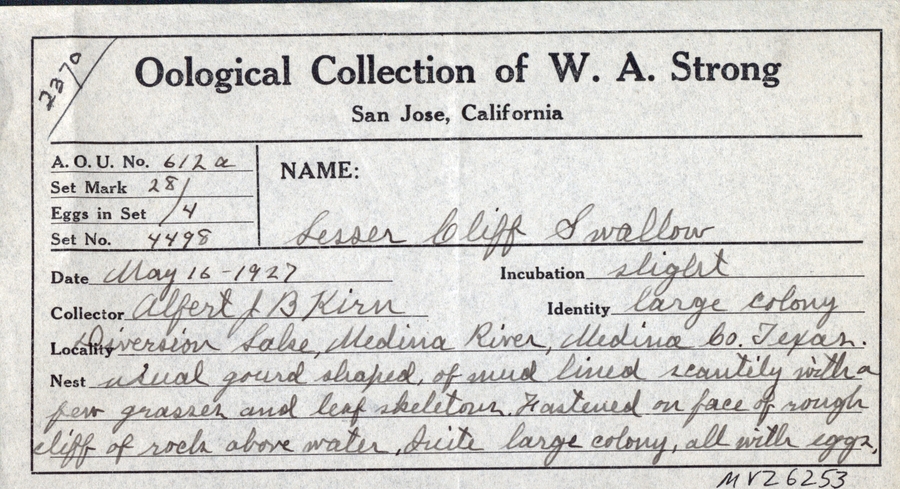 2370
Oological Collection of W. A. Strong
San Jose, California
A. O. U. No. 612a
Set Mark 28/
Eggs in Set /4
Set No. 4498
NAME:
Lesser Cliff Swallow
Date May 16-1927
Incubation slight
Collector Alfert J B Kirn
Identity large colony
Locality Diversion Lake, Medina River, Medina Co. Texas.
Nest usual gourd shaped, of mud lined scantily with a
few grasses and leaf skeletons. Fastened on face of rough
cliff of rock above water. Quite large colony, all with eggs.
MVZ 6253